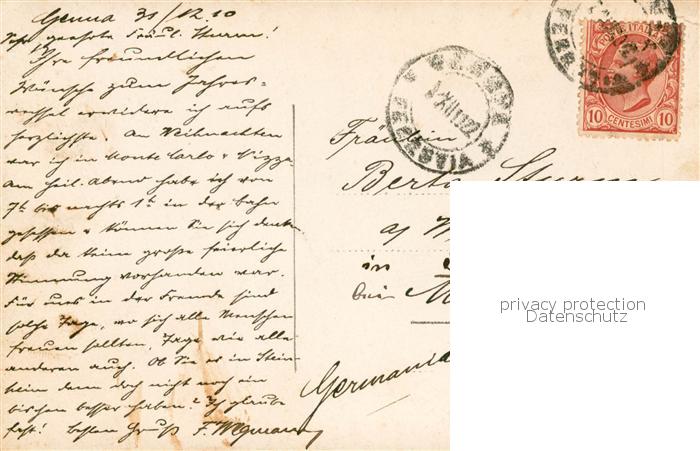 Genua 31/12.10
Sehr geehrte Fräul. Sturm!
Ihre freundlichen
Wünsche zum Jahres-
wechsel erwidere ich aufs
herzlichste. An Weihnachten
war ich in Monte Carlo & Nizza
Am heil. Abend habe ich von
7h bis nachts 1h in der bahn
gesessen & können Sie sich denken
daß da keine große feierliche
Stimmung vorhanden war.
Für uns in der Fremde sind
solche Tage, wo sich alle Menschen
freuen sollten, Tage wie alle
anderen auch. Ob Sie es in Stein-
heim denn doch nicht noch ein
bischen besser haben? Ich glaube
fast! besten Gruß F. Wegmann
GENOVA
FERROVIA
POSTE ITALIANE
10 CENTESIMI 10
Fräulein
Berta Sturm
a/
in
bei
Germania
privacy protection
Datenschutz